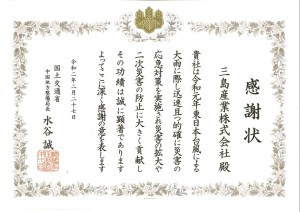 感謝状
三島産業株式会社殿
貴社は令和元年東日本台風による
大雨に際し迅速且つ的確に災害の
応急対策を実施され災害の拡大や
二次災害の防止に大きく貢献し
その功績は誠に顕著であります
よってここに深く感謝の意を表します
令和二年二月二十七日
国土交通省
中国地方整備局長 水谷誠